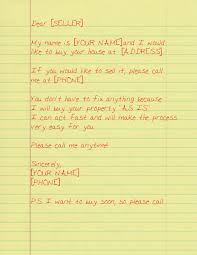 Dear [SELLER]
My name is [YOUR NAME] and I would
like to buy your house at [ADDRESS].
If you would like to sell it, please call
me at [PHONE]
You don't have to fix anything because
I will buy your property "AS IS"
I can act fast and will make the process
very easy for you.
Please call me anytime!
Sincerely,
[YOUR NAME]
[PHONE]
P.S. I want to buy soon, so please call